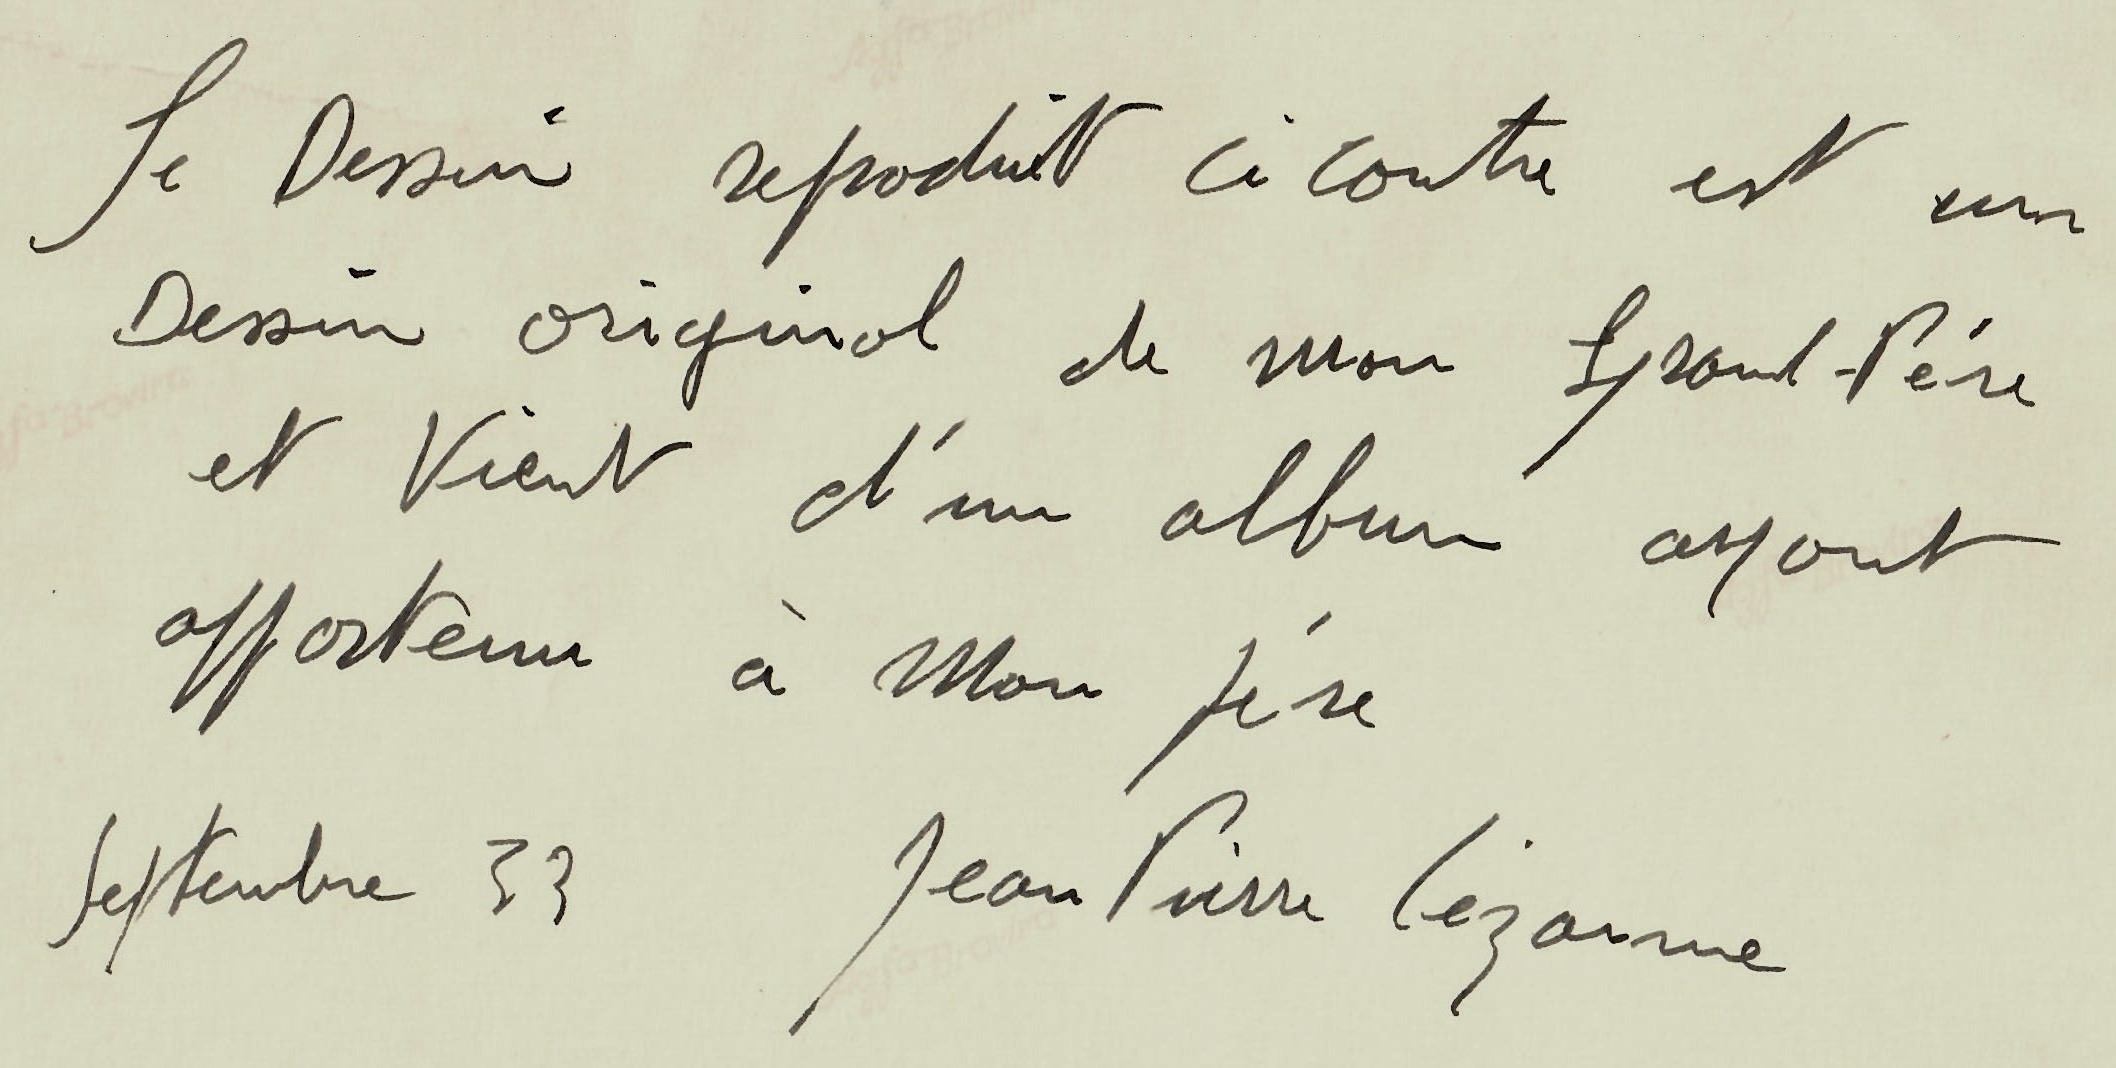 Le Dessin reproduit ci contre est un
Dessin original de mon Grand-Pére
et Vient d'un album ayant
appartenu à Mon pére
Septembre 33 Jean Pierre Cézanne